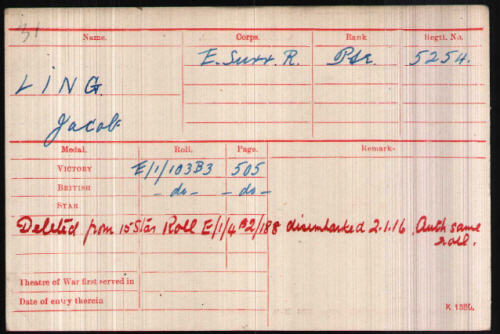 Name. Corps. Rank Regtl. No.
LING. E. Surr. R. Pte. 5254.
Jacob
Medal. Roll. Page. Remarks.
VICTORY E/1/103B3 505
BRITISH - do - - do -
STAR
Deleted from 15 Star Roll E/1/4 B2/188 disembarked 2.1.16. Auth same
roll.
Theatre of War first served in
Date of entry therein
K 1380.